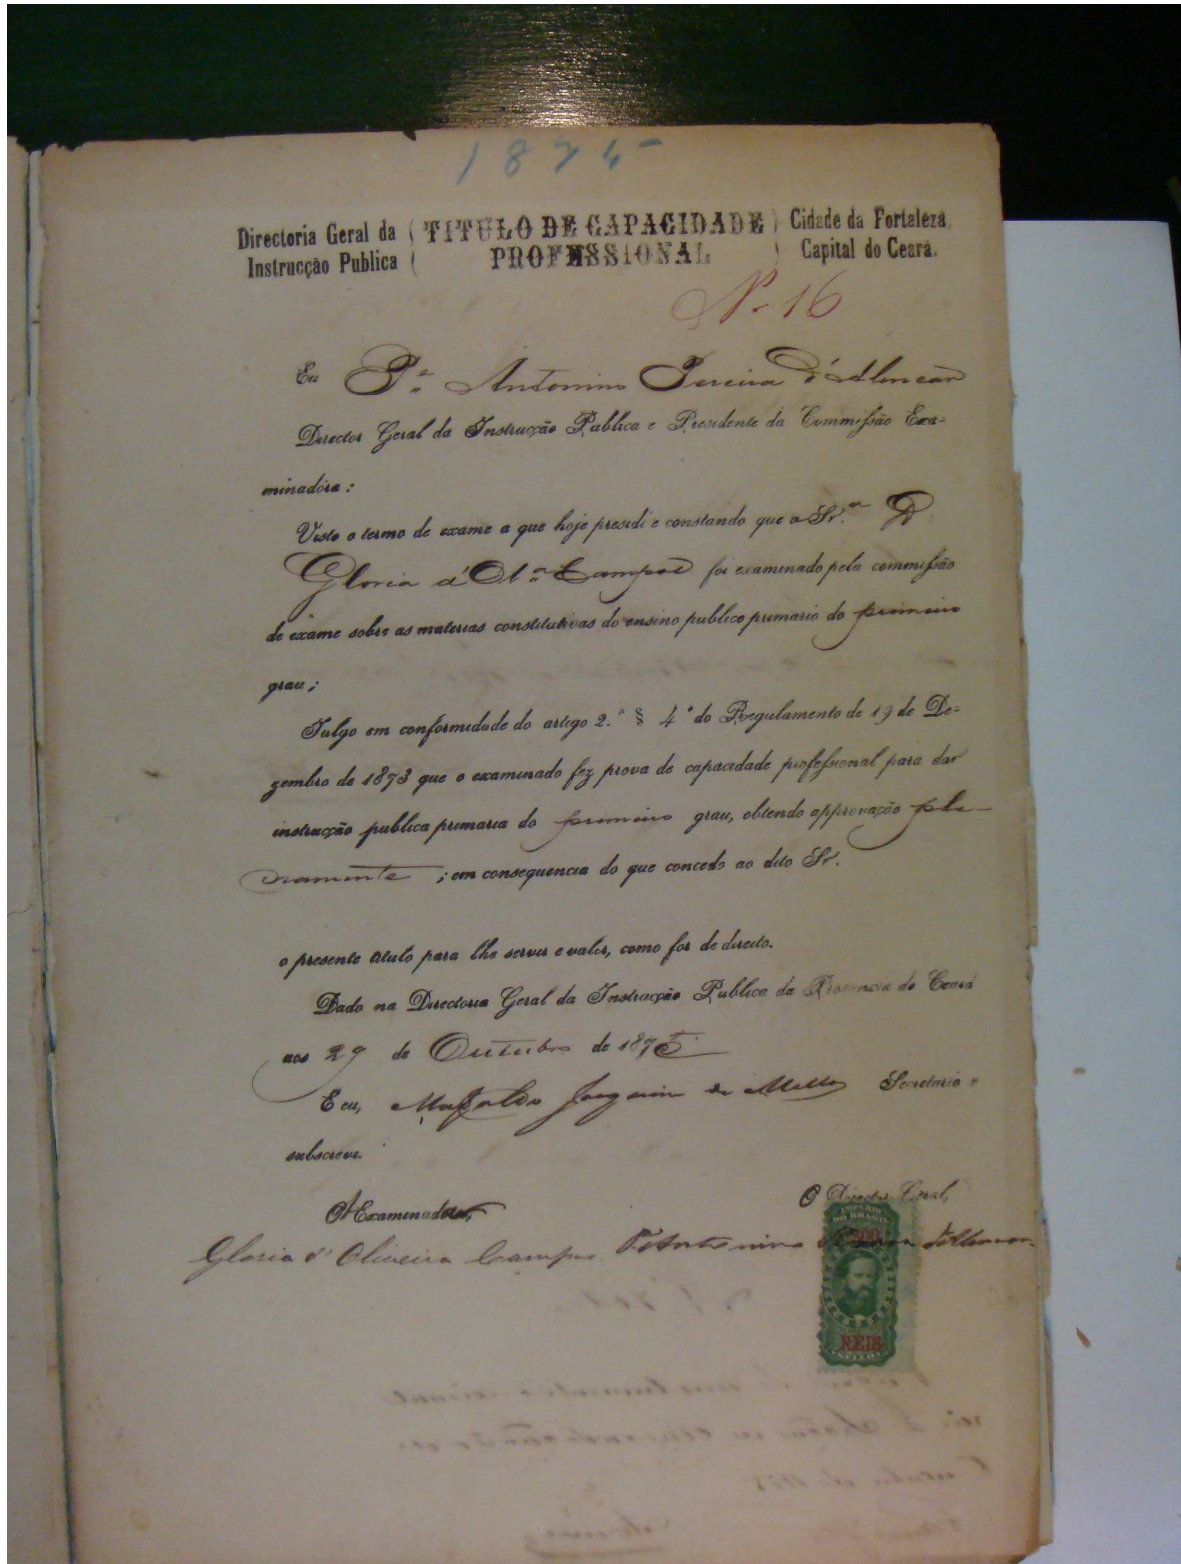 1875
Directoria Geral da Instrucção Publica
TITULO DE CAPACIDADE PROFESSIONAL
Cidade da Fortaleza, Capital do Ceará.
Nº 16
Eu Pᵉ Antonino Pereira d'Alencar
Director Geral da Instrucção Publica e Presidente da Commissão Exa-
minadora:
Visto o termo de exame a que hoje presidi e constando que o Sr.ª D.
Gloria d'Olª Campos foi examinado pela commissão
de exame sobre as materias constitutivas do ensino publico primario do primeiro
grau;
Julgo em conformidade do artigo 2.º § 4º do Regulamento de 19 de De-
zembro de 1873 que o examinado fez prova de capacidade professional para dar
instrucção publica primaria do primeiro grau, obtendo approvação ple
namente ; em consequencia do que concedo ao dito Sr.
o presente titulo para lhe servir e valer, como for de direito.
Dado na Directoria Geral da Instrucção Publica da Provincia do Ceará
aos 29 de Outubro de 1875
E eu, Joaquim de Mello Secretario o
subscrevi.
O Examinador,
O Director Geral,
Gloria d'Oliveira Campos. Pᵉ Antonino Pereira d'Alencar.
IMPERIO
DO BRASIL
200
REIS
SELLO